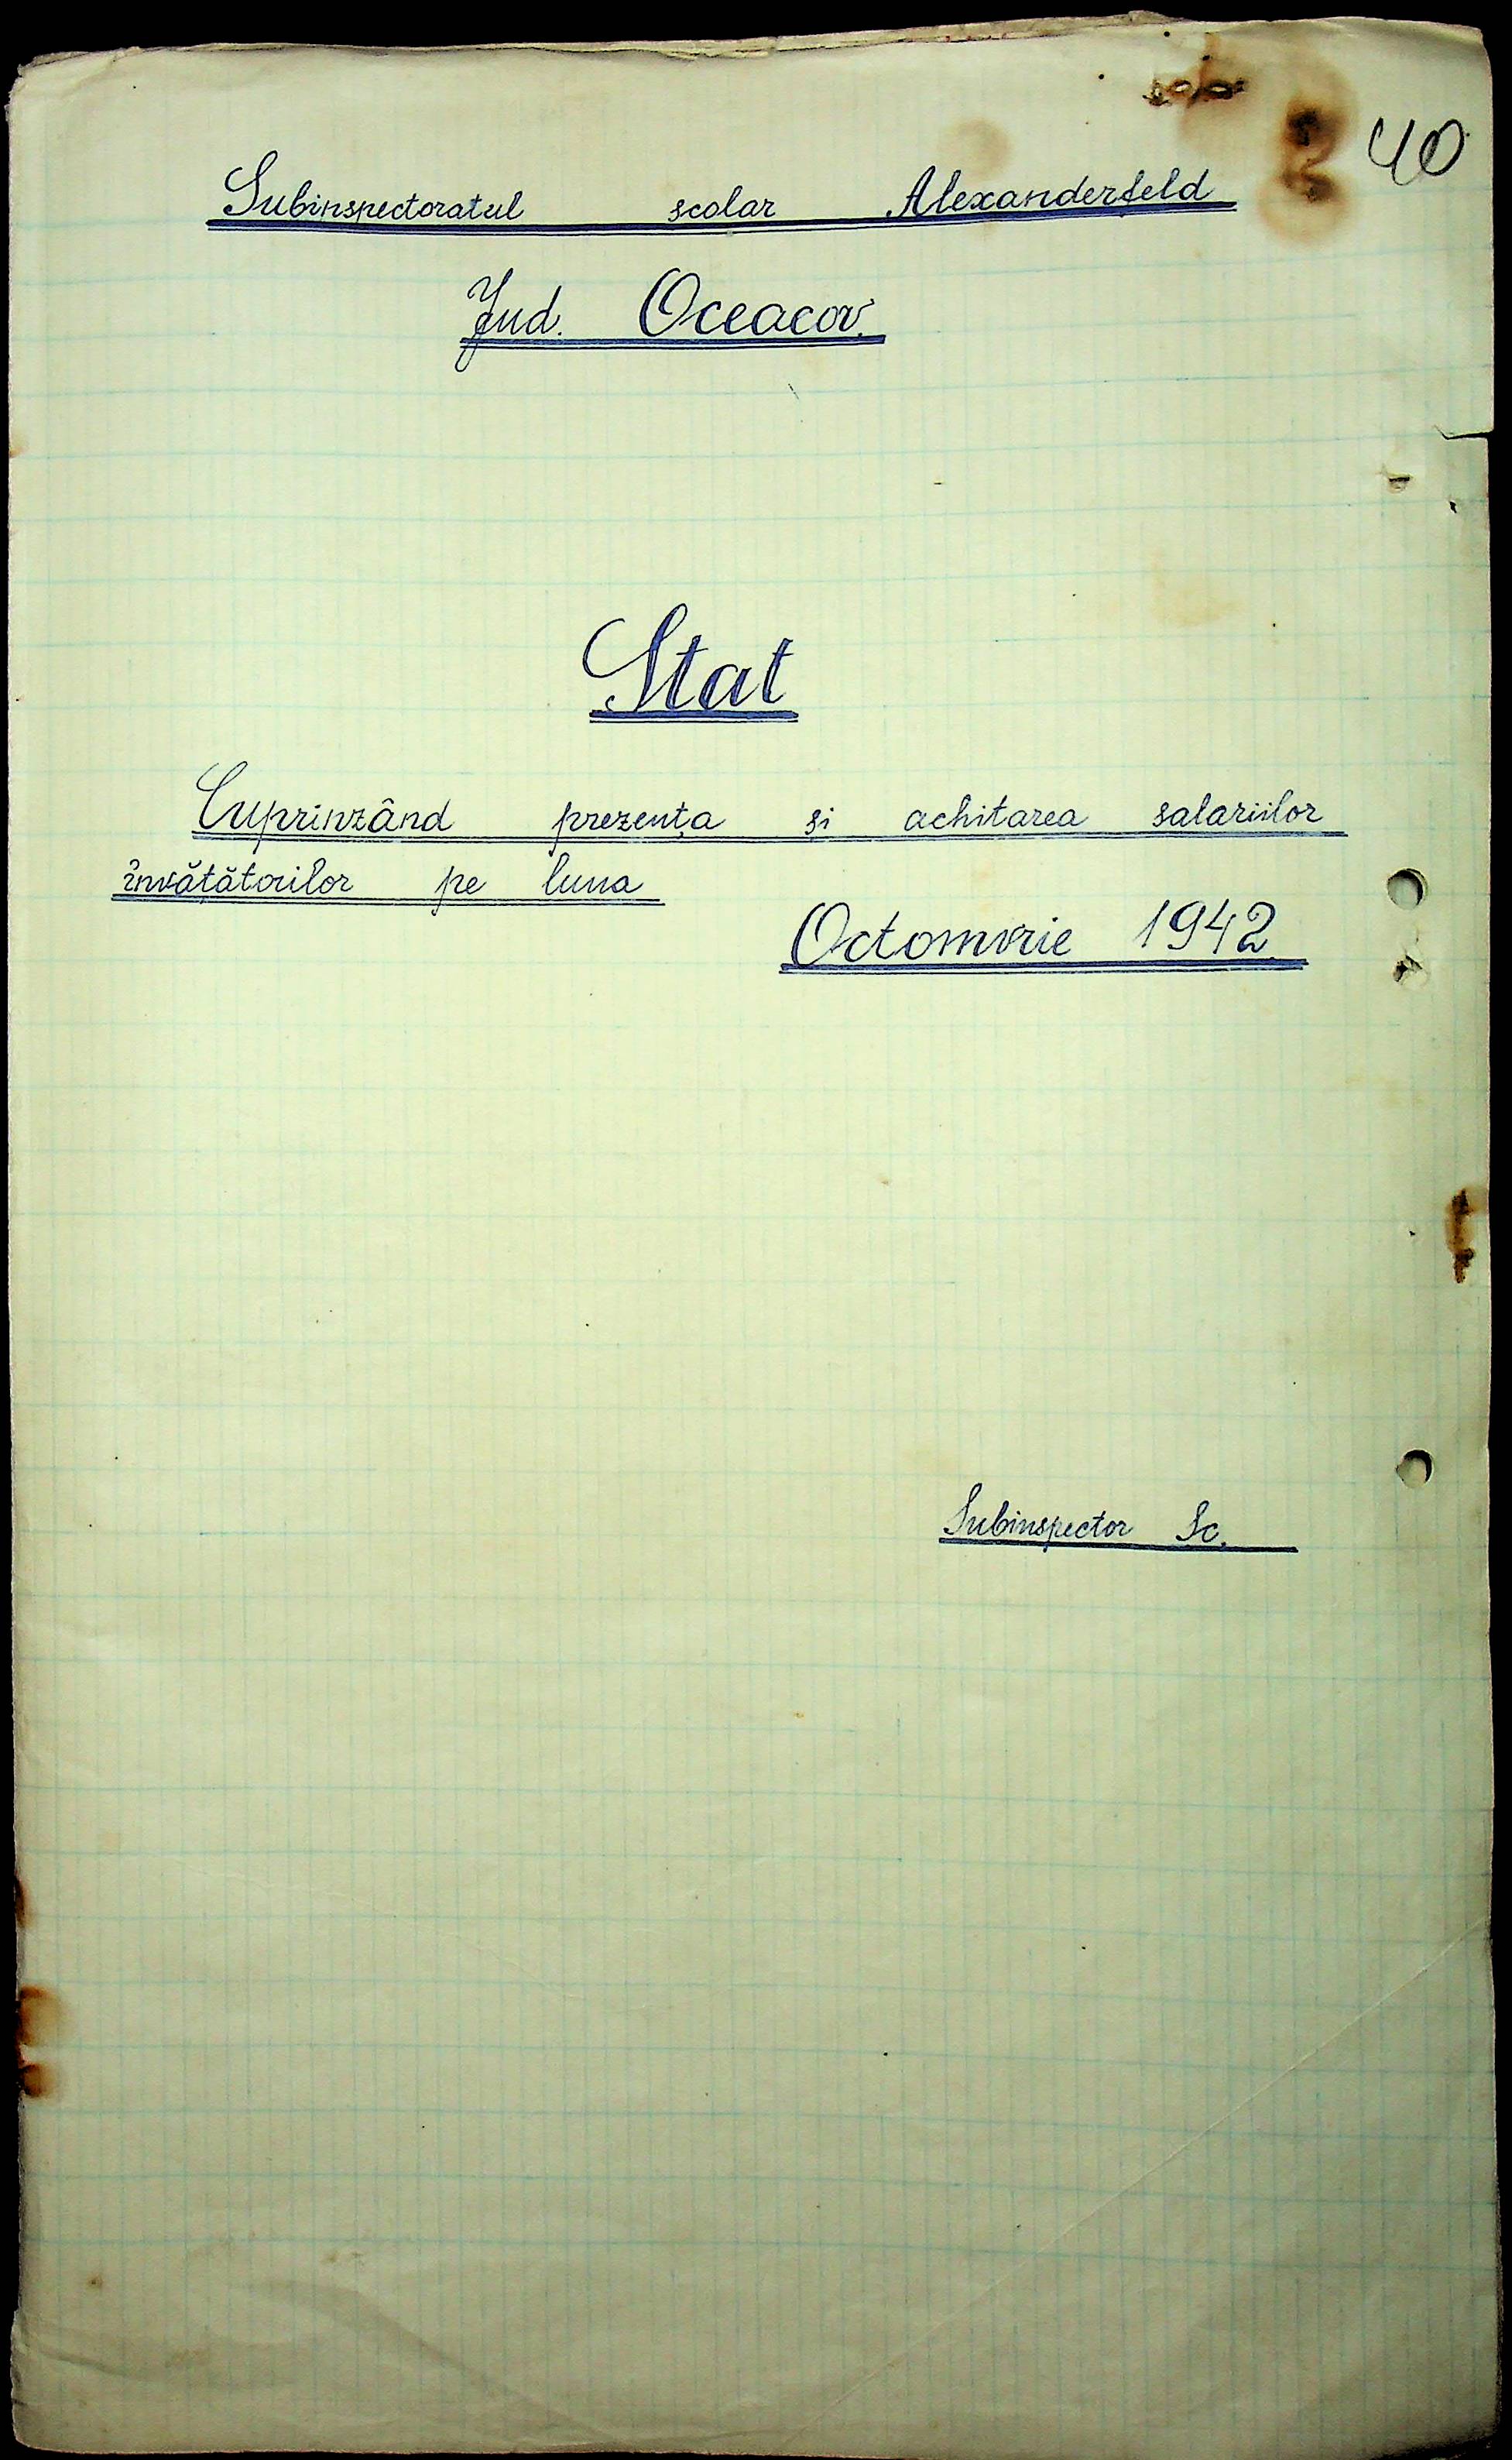 40
Subinspectoratul scolar Alexanderfeld
Jud. Oceacov.
Stat
Cuprinzând prezența și achitarea salariilor
învățătorilor pe luna
Octomvrie 1942.
Subinspector Sc.